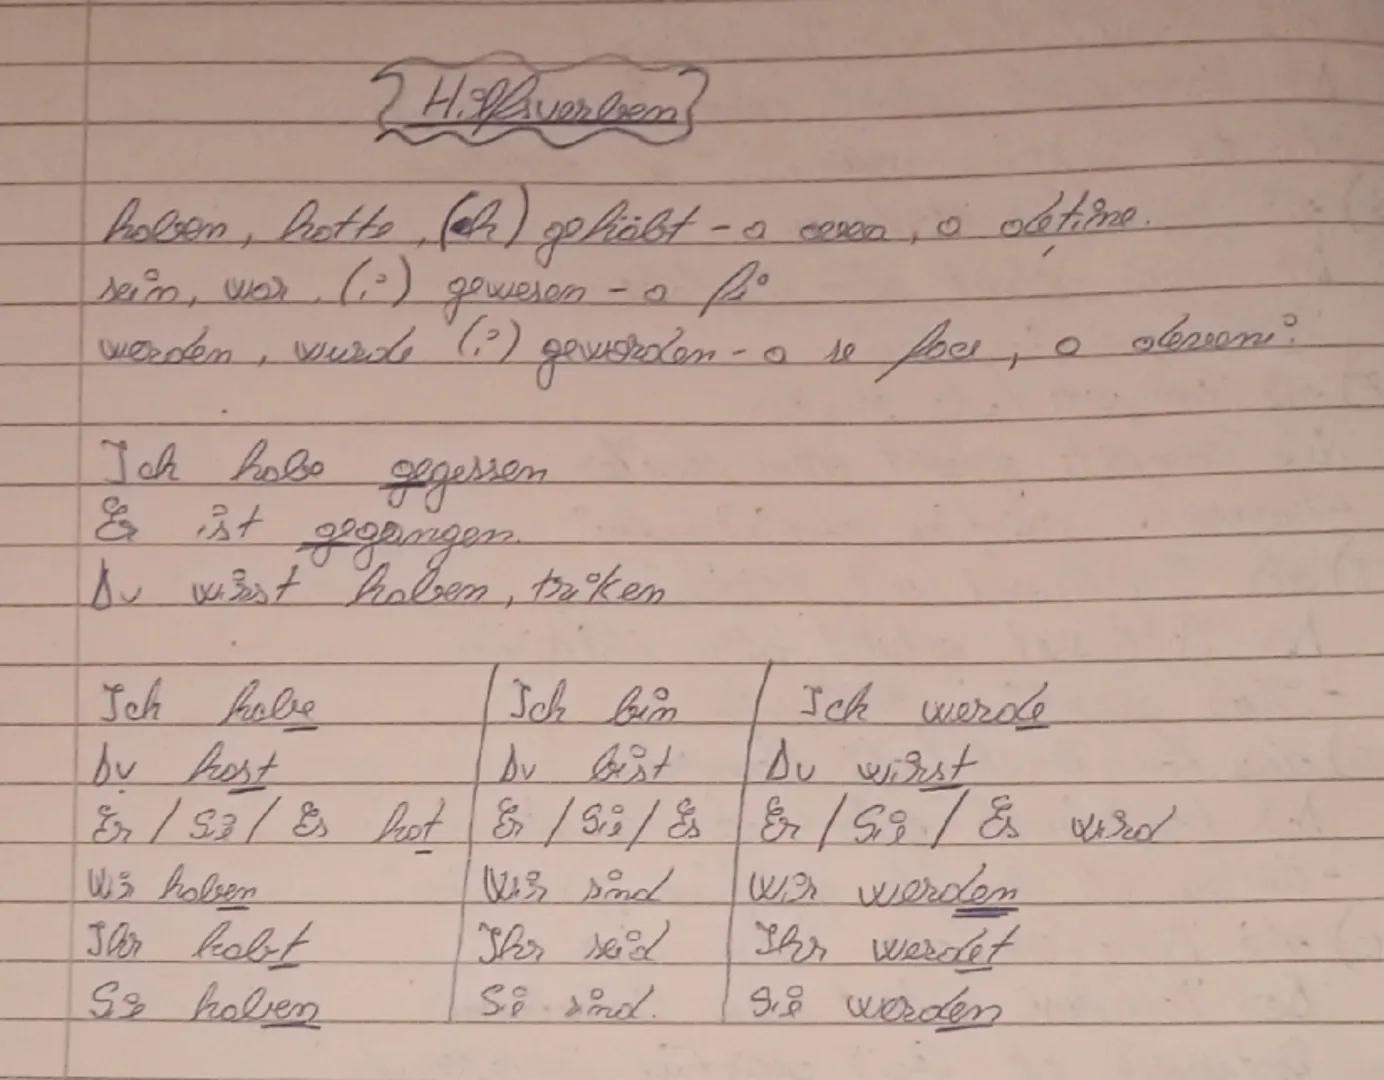 Hilfsverben
haben, hatte, (h) gehabt - a avea, a deține.
sein, war (i) gewesen - a fi
werden, wurde (i) geworden - a se face, a deveni
Ich habe gegessen
Er ist gegangen.
Du wirst haben, triken
Ich habe | Ich bin | Ich werde
Du hast | Du bist | Du wirst
Er / Sie / Es hat | Er / Sie / Es | Er / Sie / Es wird
Wir haben | Wir sind | Wir werden
Ihr habt | Ihr seid | Ihr werdet
Sie haben | Sie sind. | Sie werden